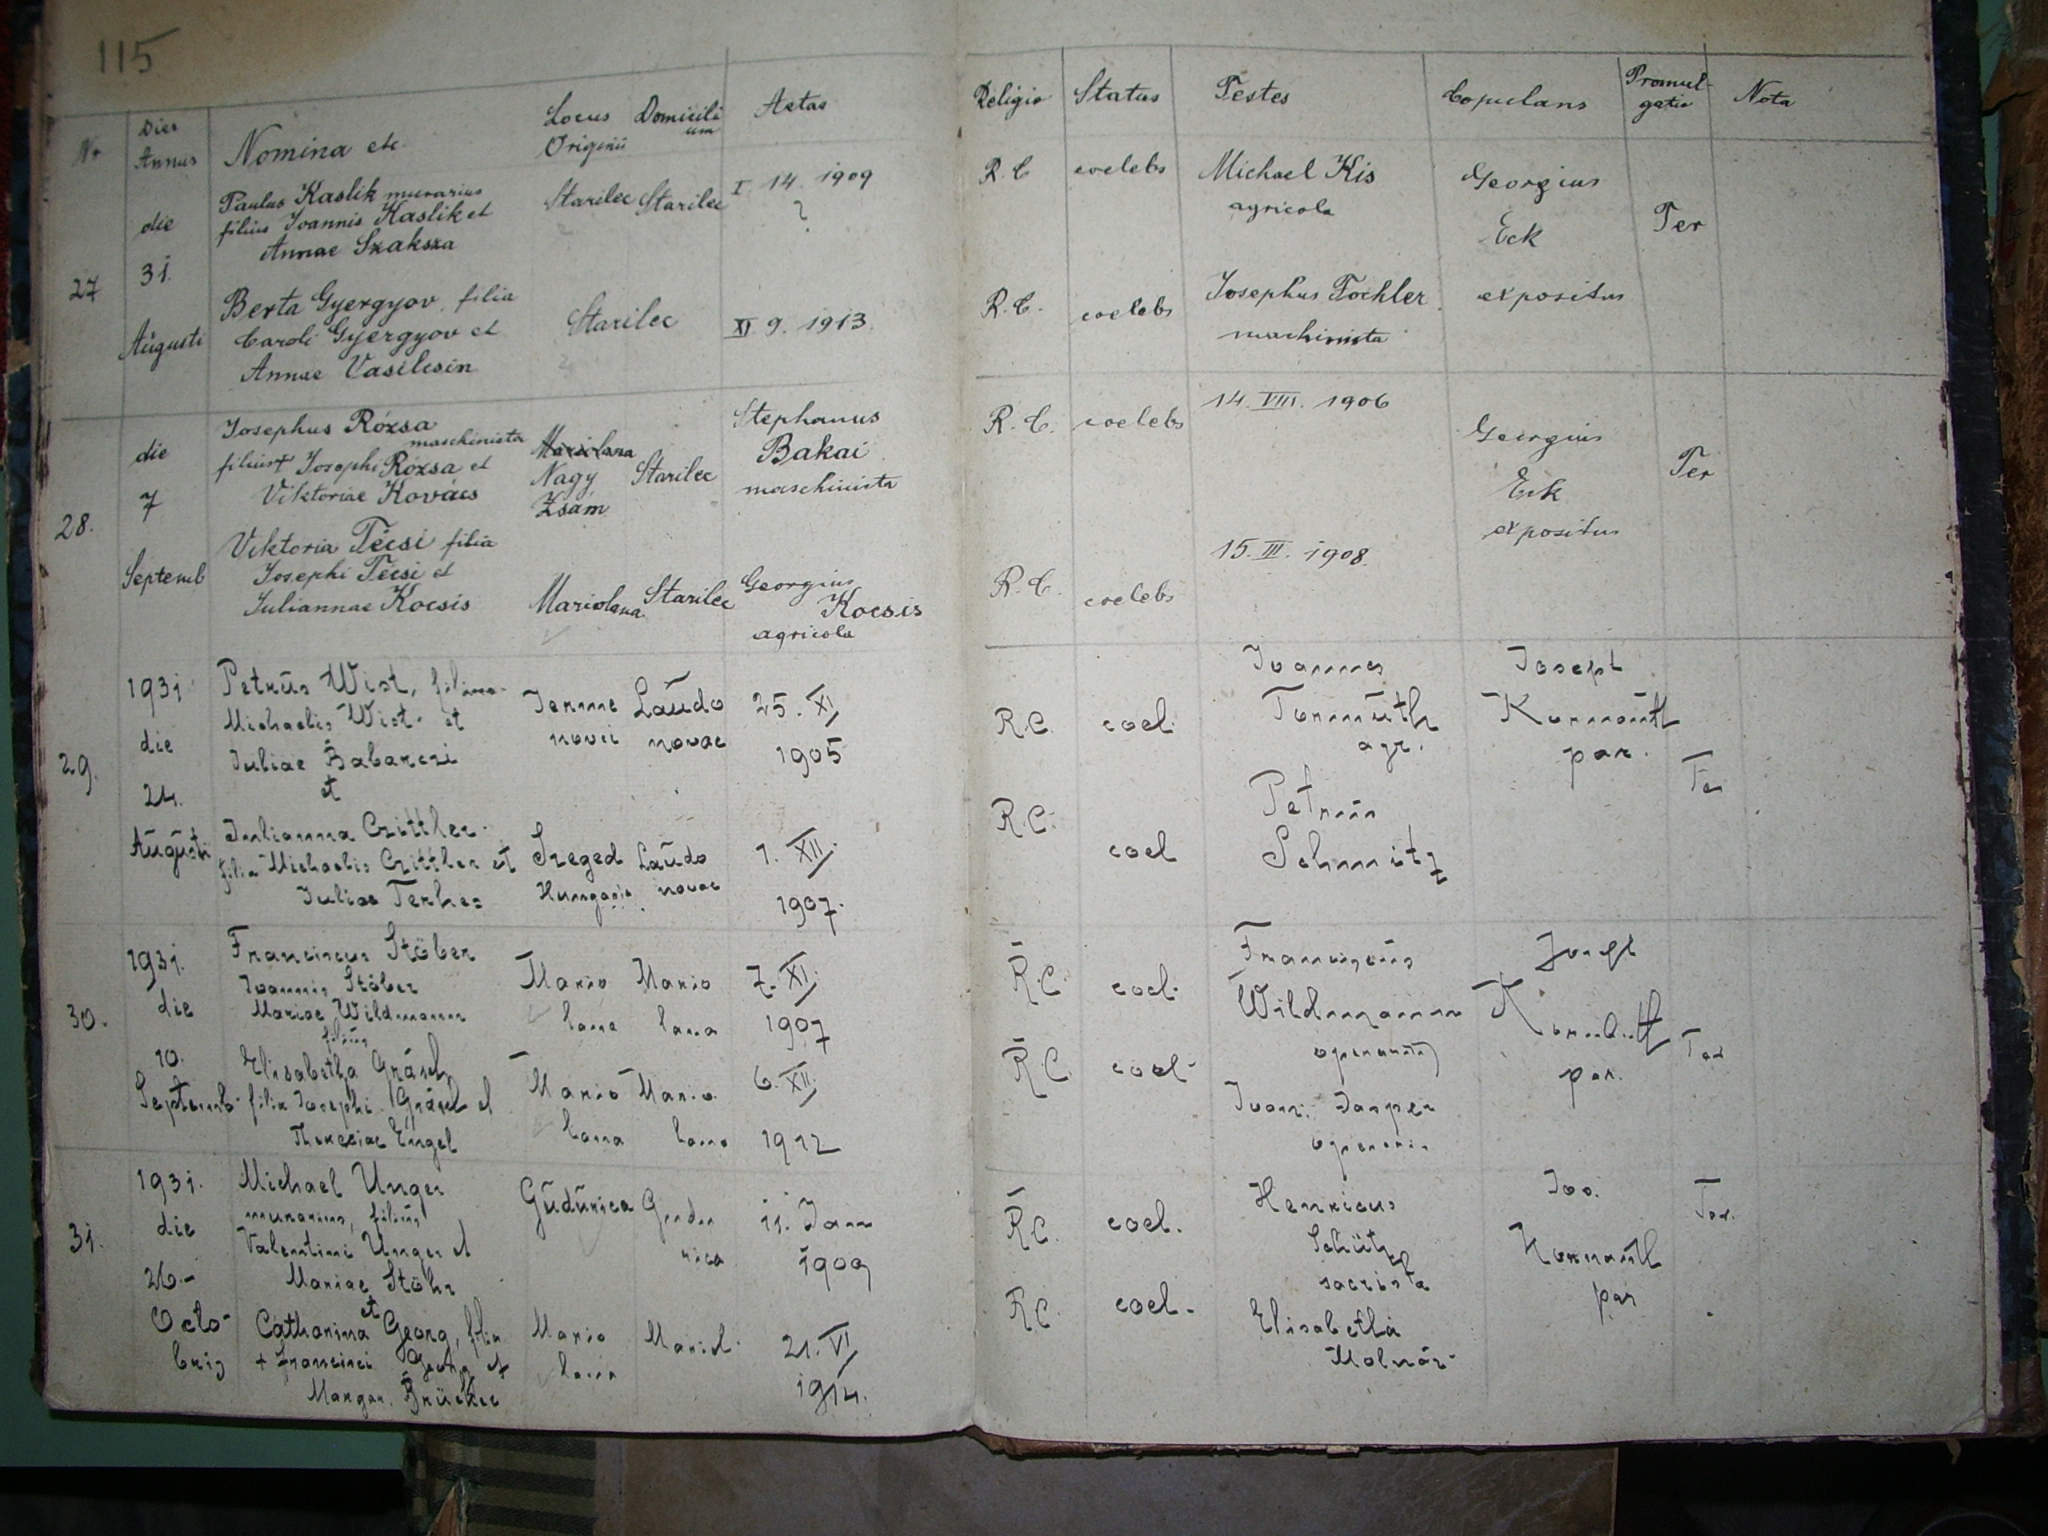 115
Nr Dies Annus Nomina etc. Locus Originii Domicilium Aetas Religio Status Testes Copulans Promulgatio Nota
27
die
31.
Augusti
Paulus Kaslik murarius
filius Ioannis Kaslik et
Annae Szaksza
Starilec Starilec
I. 14. 1909
?
R. C. coelebs
Michael Kis
agricola
Georgius
Eck
expositus
Ter
Berta Gyergyov, filia
Caroli Gyergyov et
Annae Vasilcsin
Starilec
XI. 9. 1913.
R. C. coelebs
Josephus Tochler
machinista
28.
die
7
Septemb
Josephus Rózsa
maschinista
filius + Josephi Rózsa et
Viktoriae Kovács
Mariolana
Nagy
Zsám
Starilec
Stephanus
Bakai
maschinista
R. C. coelebs
14. VIII. 1906
Georgius
Eck
expositus
Ter
Viktoria Técsi filia
Josephi Técsi et
Juliannae Kocsis
Mariolana Starilec
Georgius
Kocsis
agricola
R. C. coelebs
15. III. 1908.
29.
1931
die
24.
Augusti
Petrus Wist, filius
Michaelis Wist et
Juliae Babarczi
et
novei
Laudo
novac
25. XI
1905
R.C. coel.
Ioannes
Tormuth
agr.
Josept
par.
Ter
Julianna Czittler
filia Michaelis Czittler et
Juliae Terhes
Szeged
Hungaria
Laudo
novac
1. XII.
1907.
R.C. coel
Petrus
Schmitz
30.
1931.
die
10.
Septemb.
Franciscus Stöber
Ioannis Stöber
Mariae Wildmann
filius
Mario
lana
Mario
lana
7. XI.
1907
R.C. coel.
Franciscus
Wildmann
par.
Ter
Elisabetha Gräsel
filia Josephi Gräsel et
Theresiae Engel
Mario
lana
Mario
lana
6. XII.
1912
R.C. coel.
Ioan. Jasper
31.
1931.
die
26.-
Octo-
bris
Michael Unger
murarius, filius
Valentini Unger et
Mariae Stöhr
et
Gudurica
Gudu
rica
11. Jan
1909
R.C. coel.
Henricus
Schütz
sacrista
Ioo.
par
Ter.
Catharina Georg, filia
+ Francisci Georg et
Margar. Brücker
Mario
lana
Mariol.
21. VI
1914.
R.C. coel.
Elisabetha
Molnár